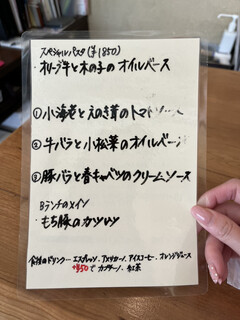 スペシャルパスタ (¥1850)
・オリーブ牛と木の子の オイルベース
① 小海老とえのき茸のトマトソース
② 牛バラと小松菜のオイルベース
③ 豚バラと春キャベツのクリームソース
Bランチのメイン
・もち豚のカツレツ
食後のドリンク… エスプレッソ、アメリカーノ、アイスコーヒー、オレンジジュース
+¥50で カプチーノ、紅茶